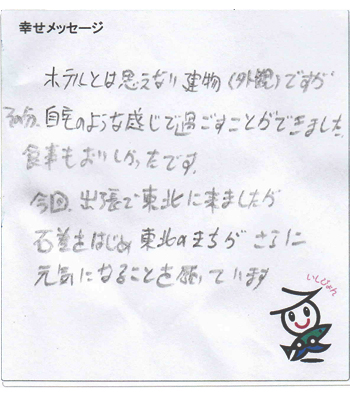 幸せメッセージ
ホテルとは思えない建物(外観)ですが
その分、自宅のような感じで過ごすことができました。
食事もおいしかったです。
今回、出張で東北に来ましたが
石巻をはじめ東北のまちがさらに
元気になることを願っています
いしぴょん